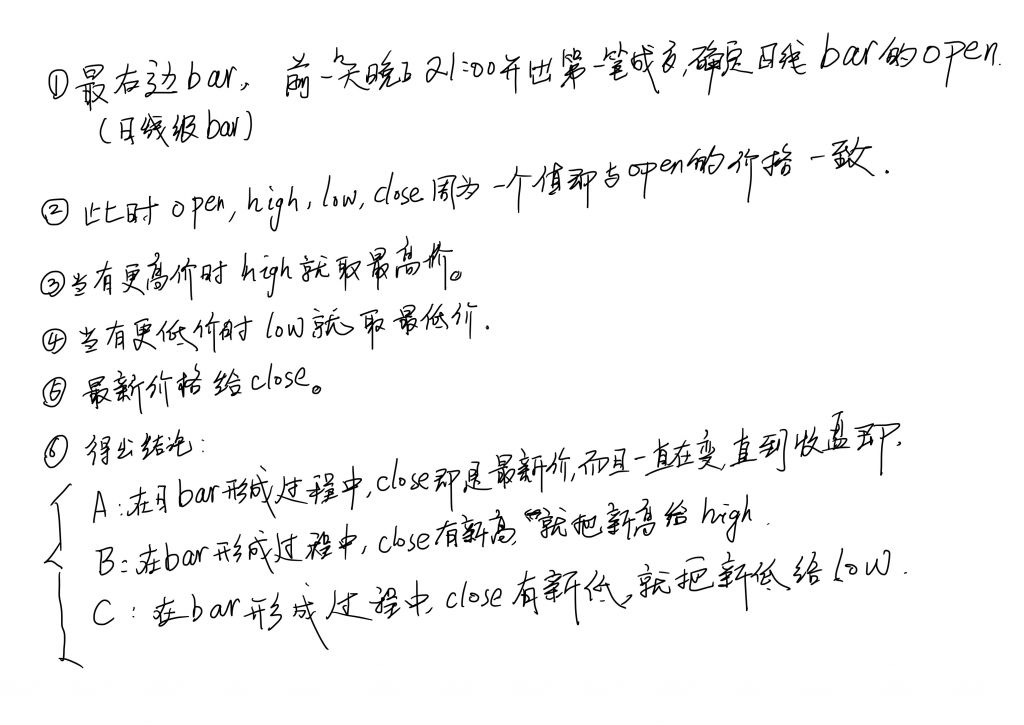 ① 最右边bar, 前一天晚上21:00开出第一笔成交,确定日线bar的open.
(日线级bar)
② 此时open, high, low, close 同为一个值即与open的价格一致.
③ 当有更高价时 high就取最高价。
④ 当有更低价时 low就取最低价.
⑤ 最新价格给close。
⑥ 得出结论:
A:在日bar形成过程中,close即是最新价,而且一直在变,直到收盘即.
B:在bar形成过程中, close有新高, 就把新高给high.
C:在bar形成过程中, close有新低,就把新低给low.